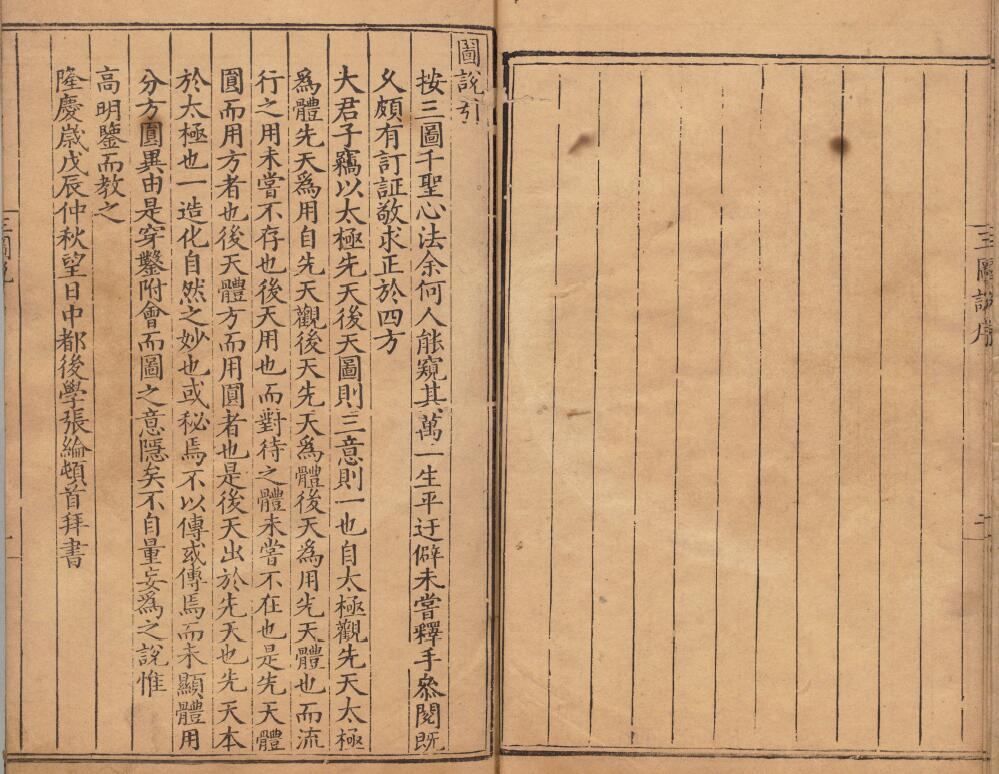 三圖說序
二
圖說引
按三圖千聖心法余何人能窺其萬一生平迂僻未嘗釋手叅閱既
久頗有訂証敬求正於四方
大君子竊以太極先天後天圖則三意則一也自太極觀先天太極
爲體先天爲用自先天觀後天先天爲體後天爲用先天體也而流
行之用未嘗不存也後天用也而對待之體未嘗不在也是先天體
圓而用方者也後天體方而用圓者也是後天出於先天也先天本
於太極也一造化自然之妙也或秘焉不以傳或傳焉而未顯體用
分方圓異由是穿鑿附會而圖之意隱矣不自量妄爲之說惟
高明鑒而教之
隆慶歲戊辰仲秋望日中都後學張綸頓首拜書
三圖說
一